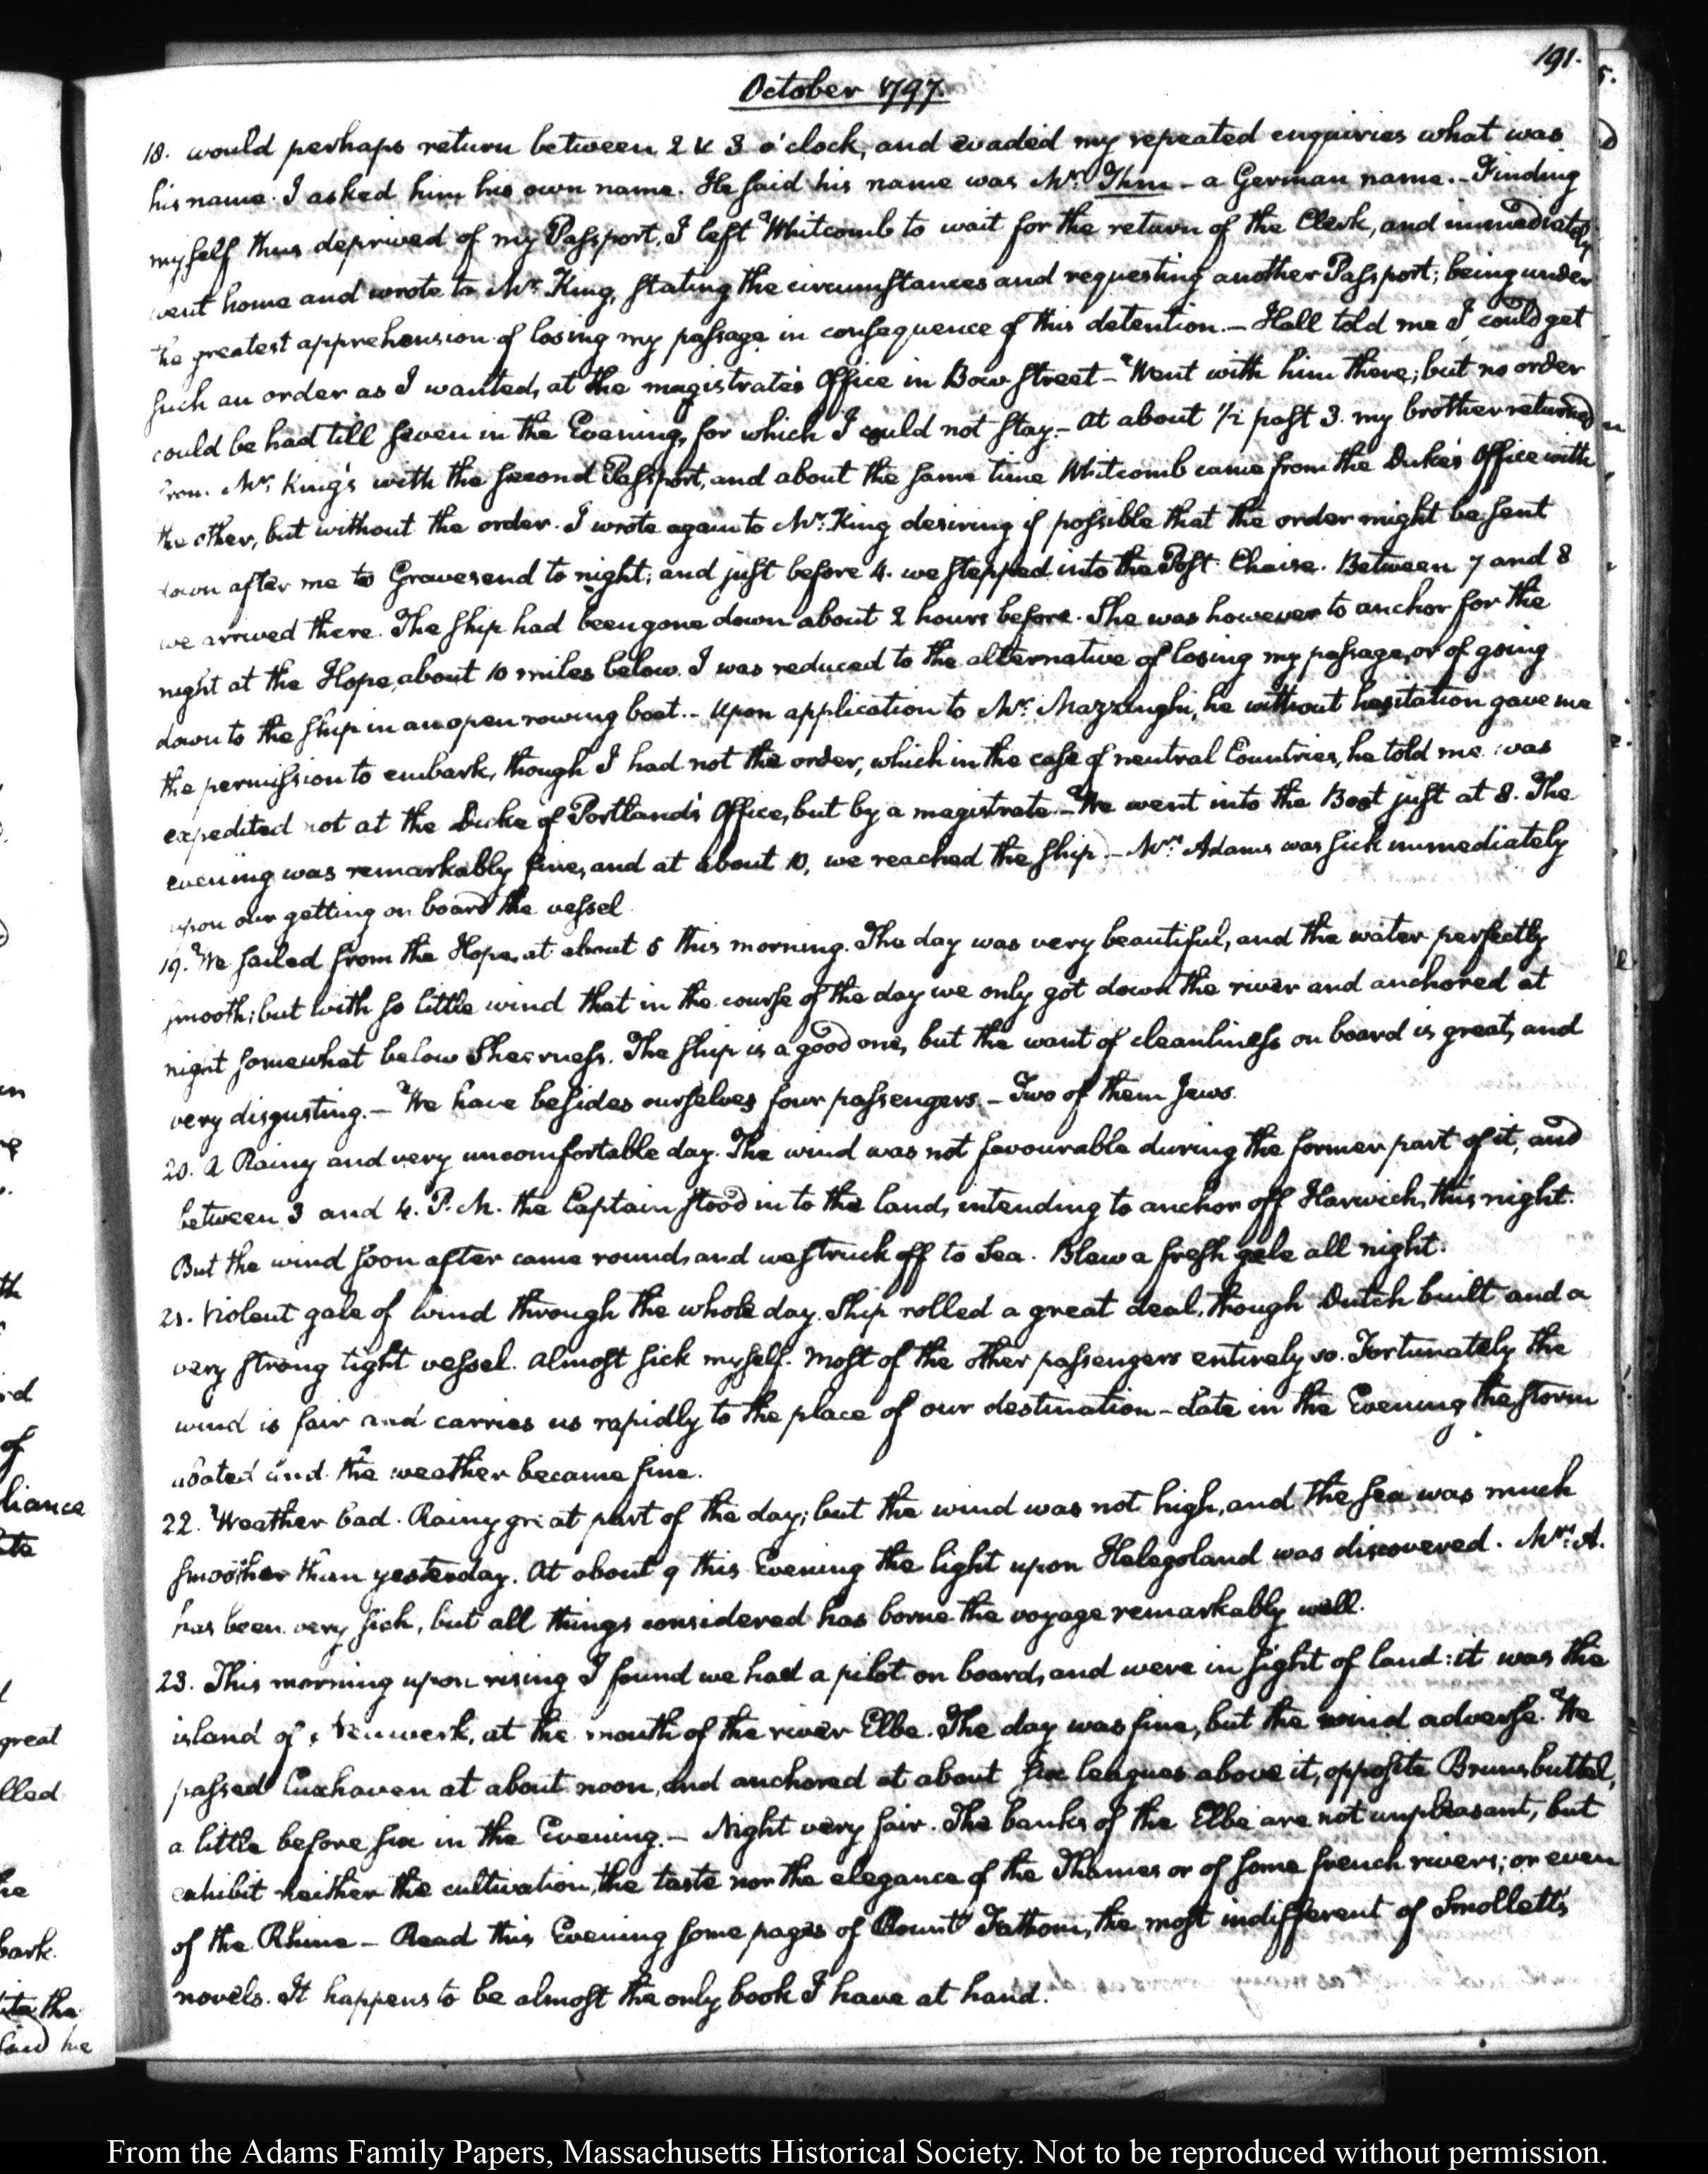 191.
October 1797.
18. would perhaps return between 2 & 3 o'clock, and evaded my repeated enquiries what was
his name. I asked him his own name. He said his name was Mr. Thm - a German name. - Finding
myself thus deprived of my Passport, I left Whitcomb to wait for the return of the Clerk, and immediately
went home and wrote to Mr. King, stating the circumstances and requesting another Passport; being under
the greatest apprehension of losing my passage in consequence of this detention. - Hall told me I could get
such an order as I wanted, at the magistrate's Office in Bow Street - Went with him there; but no order
could be had till seven in the Evening, for which I could not stay. - At about 1/2 past 3. my brother returned
from Mr. King's with the second Passport, and about the same time Whitcomb came from the Duke's Office with
the other, but without the order. I wrote again to Mr. King desiring if possible that the order might be sent
down after me to Gravesend to night; and just before 4. we stepped into the Post Chaise. Between 7 and 8
we arrived there. The ship had been gone down about 2 hours before. She was however to anchor for the
night at the Hope, about 10 miles below. I was reduced to the alternative of losing my passage, or of going
down to the ship in an open rowing boat. - Upon application to Mr. Mazzinghi, he without hesitation gave me
the permission to embark, though I had not the order, which in the case of neutral Countries, he told me was
expedited not at the Duke of Portland's Office, but by a magistrate. - We went into the Boat just at 8. The
evening was remarkably fine, and at about 10, we reached the ship. - Mrs. Adams was sick immediately
upon our getting on board the vessel.
19. We sailed from the Hope, at about 5 this morning. The day was very beautiful, and the water perfectly
smooth; but with so little wind that in the course of the day we only got down the river and anchored at
night somewhat below Sheerness. The ship is a good one, but the want of cleanliness on board is great, and
very disgusting. - We have besides ourselves four passengers. - Two of them Jews.
20. A Rainy and very uncomfortable day. The wind was not favourable during the former part of it, and
between 3 and 4. P.M. the Captain stood in to the land, intending to anchor off Harwich, this night.
But the wind soon after came round, and we struck off to Sea. Blew a fresh gale all night.
21. Violent gale of wind through the whole day. Ship rolled a great deal, though Dutch built and a
very strong tight vessel. Almost sick myself. Most of the other passengers entirely so. Fortunately the
wind is fair and carries us rapidly to the place of our destination - Late in the Evening the storm
abated and the weather became fine.
22. Weather bad. Rainy great part of the day; but the wind was not high, and the sea was much
smoother than yesterday. At about 9 this Evening the light upon Helegoland was discovered. Mrs. A.
has been very sick, but all things considered has borne the voyage remarkably well.
23. This morning upon rising I found we had a pilot on board, and were in sight of land: it was the
island of Neuwerk, at the mouth of the river Elbe. The day was fine, but the wind adverse. We
passed Cuxhaven at about noon, and anchored at about six leagues above it, opposite Brunsbuttel,
a little before six in the Evening. - Night very fair. The banks of the Elbe are not unpleasant, but
exhibit neither the cultivation, the taste nor the elegance of the Thames or of some french rivers; or even
of the Rhine - Read this Evening some pages of Count Fathom, the most indifferent of Smollett's
novels. It happens to be almost the only book I have at hand.
From the Adams Family Papers, Massachusetts Historical Society. Not to be reproduced without permission.